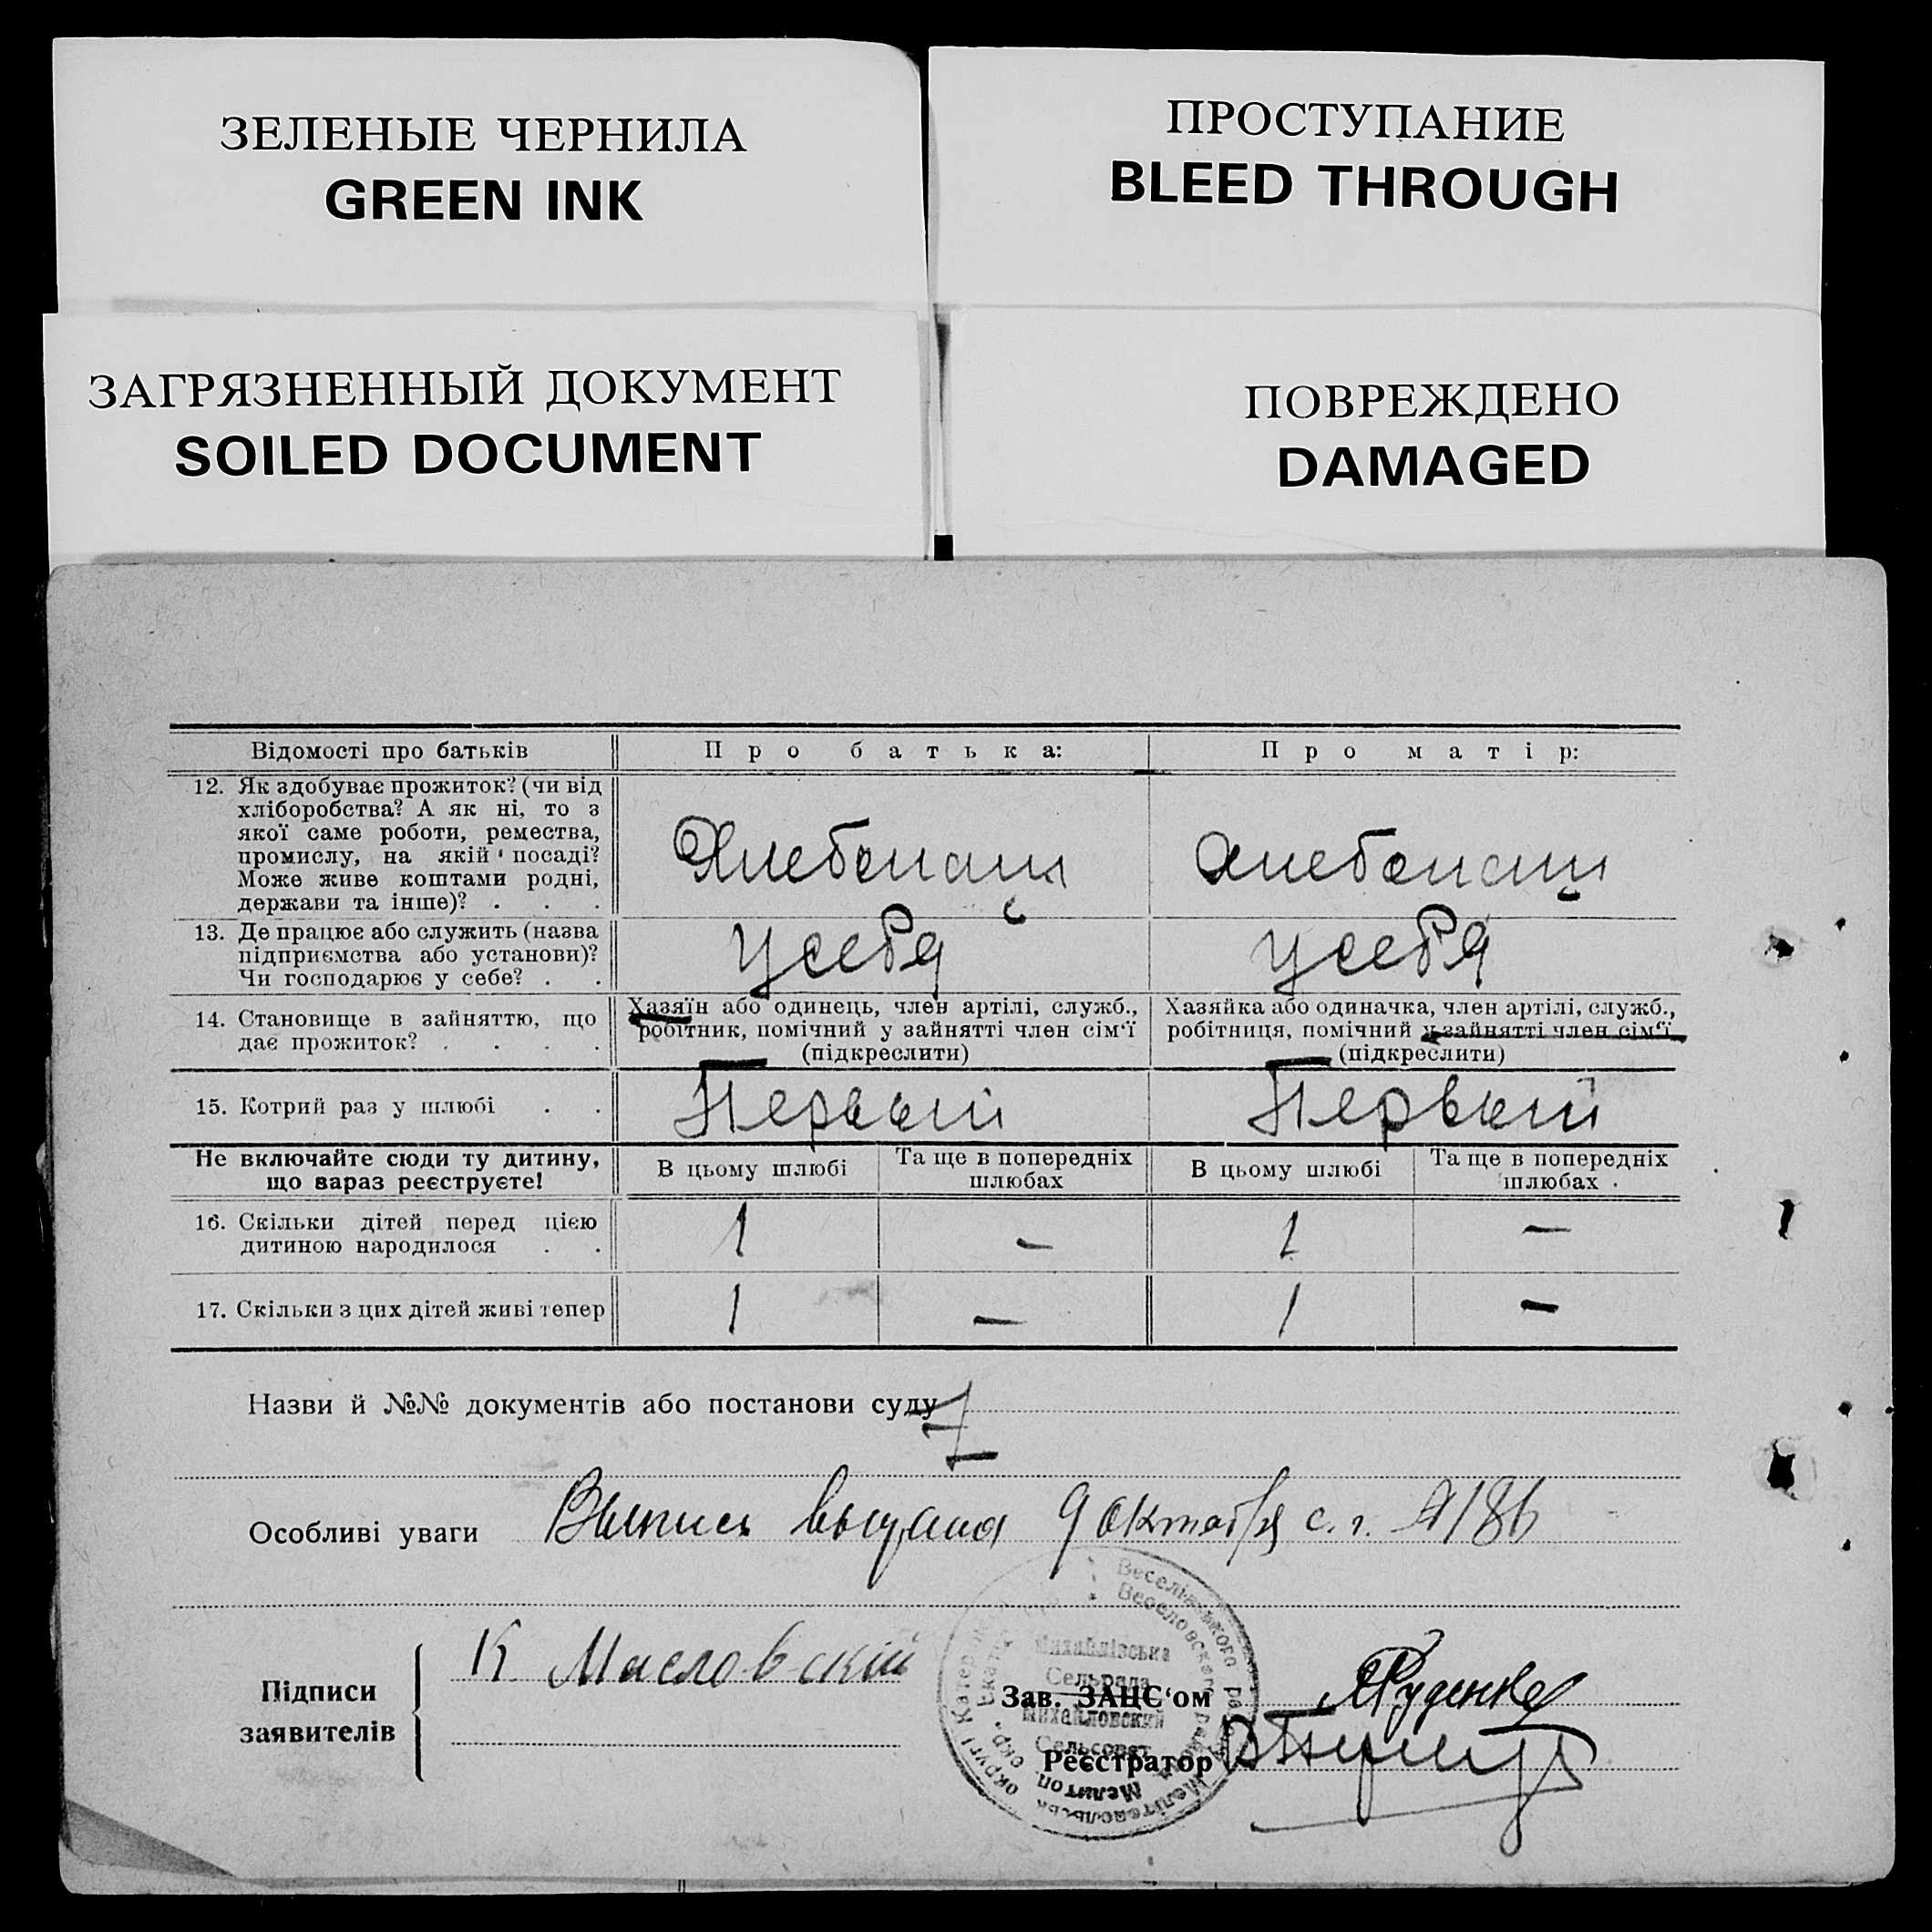 ЗЕЛЕНЫЕ ЧЕРНИЛА
GREEN INK
ПРОСТУПАНИЕ
BLEED THROUGH
ЗАГРЯЗНЕННЫЙ ДОКУМЕНТ
SOILED DOCUMENT
ПОВРЕЖДЕНО
DAMAGED
Відомості про батьків
Про батька:
Про матір:
12. Як здобуває прожиток? (чи від
хліборобства? А як ні, то з
якої саме роботи, ремества,
промислу, на якій посаді?
Може живе коштами родні,
держави та інше)? . . .
Хлебопаш
Хлебопаш
13. Де працює або служить (назва
підприємства або установи)?
Чи господарює у себе? . .
у себя
у себя
14. Становище в зайняттю, що
дає прожиток? . . . .
Хазяїн або одинець, член артілі, служб.,
робітник, помічний у зайнятті член сім'ї
(підкреслити)
Хазяйка або одиначка, член артілі, служб.,
робітниця, помічний у зайнятті член сім'ї
(підкреслити)
15. Котрий раз у шлюбі . .
Первый
Первый
Не включайте сюди ту дитину,
що зараз реєструєте!
В цьому шлюбі
Та ще в попередніх
шлюбах
В цьому шлюбі
Та ще в попередніх
шлюбах
16. Скільки дітей перед цією
дитиною народилося . .
1 — 1 —
17. Скільки з цих дітей живі тепер
1 — 1 —
Назви й №№ документів або постанови суду
Особливі уваги Выпись выдана 9 октября с. г. №186
Підписи
заявителів
К Масловский
Зав. ЗАЦС'ом Руденко
Реєстратор
Веселівського
Веселовского
Михайлівська
Сельрада
Михайловский
Сельсовет
Мелітопольськ округи Катер
Мелитоп. окр. Екатер